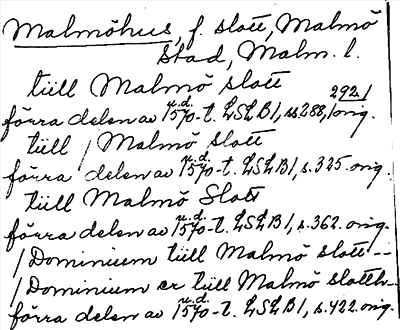 Malmöhus, f. slott, Malmö
stad, Malm. l.
tüll Malmö slott
förra delen av u.d. 1570-t. LSLB1, ss. 288, 292 / orig.
tüll / Malmö slott
förra delen av u.d. 1570-t. LSLB1, s. 325. orig.
tüll Malmö Slott
förra delen av u.d. 1570-t. LSLB1, s. 362. orig.
/ Dominium tüll Malmö slott --
/ Dominium er tüll Malmö slotth--
förra delen av u.d. 1570-t. LSLB1, s. 422. orig.